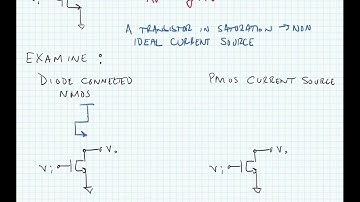 A TRANSISTOR IN SATURATION → NON
IDEAL CURRENT SOURCE
EXAMINE :
DIODE CONNECTED
NMOS
PMOS CURRENT SOURCE
Vi
Vo
Vi
Vo